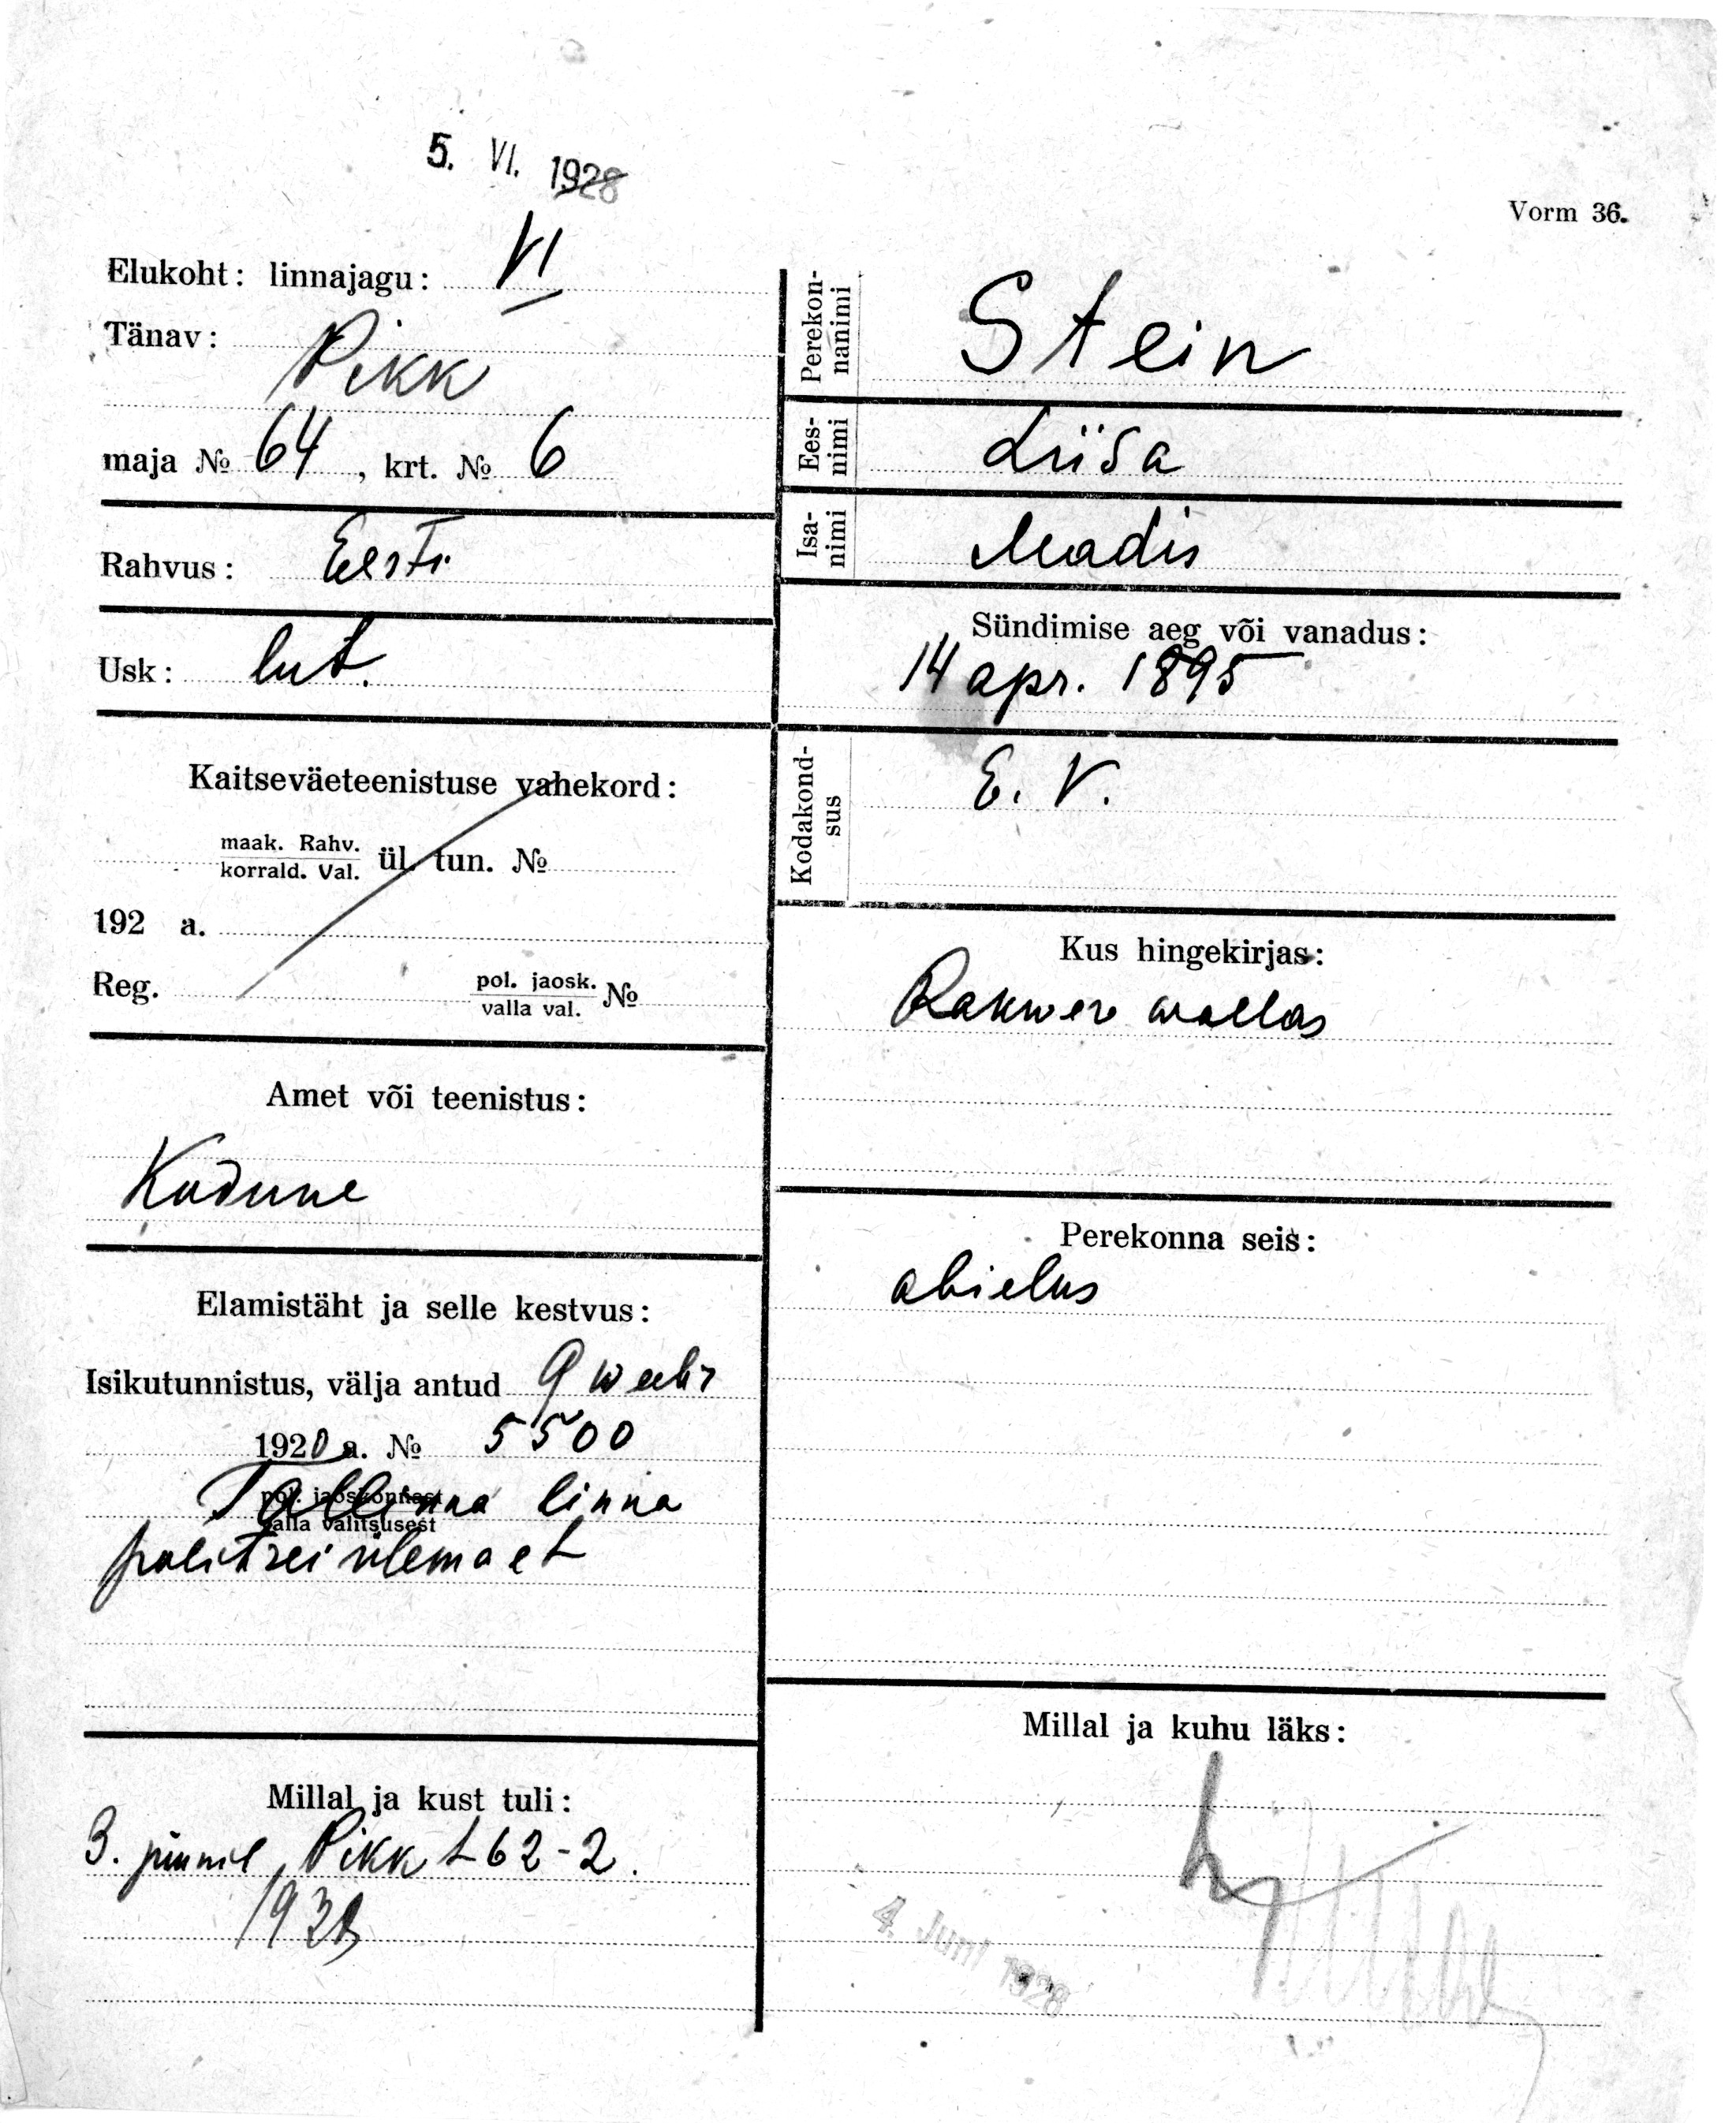 5. VI. 1928
Vorm 36.
Elukoht: linnajagu: VI
Tänav: Pikk
maja № 64, krt. № 6
Rahvus: Eesti
Usk: lut.
Kaitseväeteenistuse vahekord:
maak. Rahv.
korrald. Val. ül. tun. №
192 a.
Reg. pol. jaosk.
valla val. №
Amet või teenistus:
Kodune
Elamistäht ja selle kestvus:
Isikutunnistus, välja antud 9 weebr
1920 a. № 5500
pol. jaoskonnast
valla valitsusest
Tallinna linna
politsei ülemaet
Millal ja kust tuli:
3. juunil, Pikk t 62-2.
1928
Perekon-
nanimi Stein
Ees-
nimi Liisa
Isa-
nimi Madis
Sündimise aeg või vanadus:
14 apr. 1895
Kodakond-
sus E. V.
Kus hingekirjas:
Rakwere wallas
Perekonna seis:
abielus
Millal ja kuhu läks:
4. Juni 1928